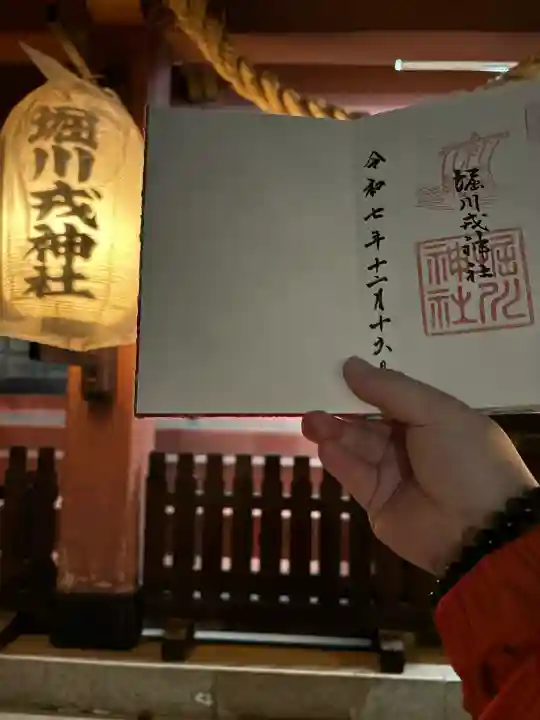 堀川戎神社
堀川戎神社
堀川戎神社
令和七年十二月十六日